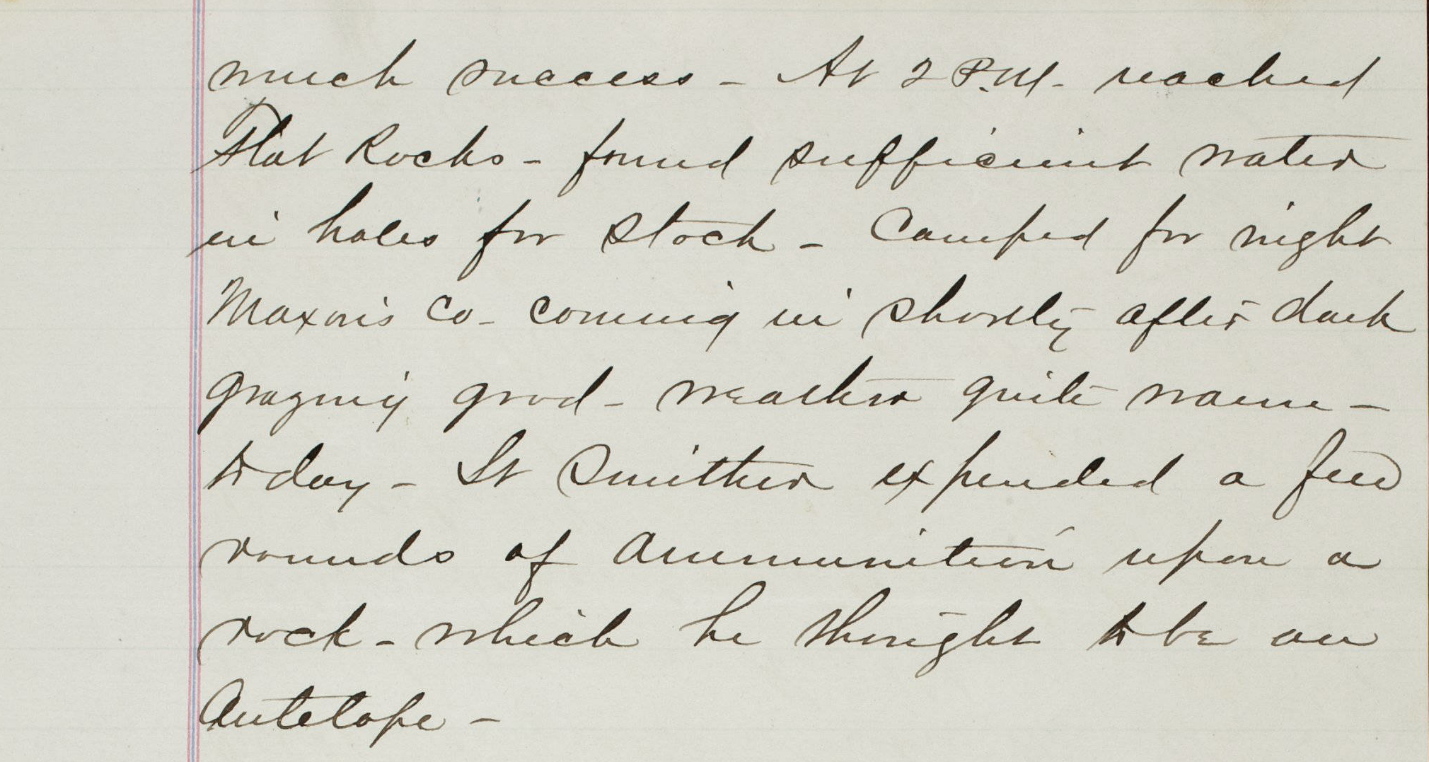 much success - At 2 P.M. reached
Flat Rocks - found sufficient water
in holes for stock - Camped for night
Maxon's Co - coming in shortly after dark
grazing good - weather quite warm -
today - Lt Smither expended a few
rounds of ammunition upon a
rock - which he thought to be an
Antelope -